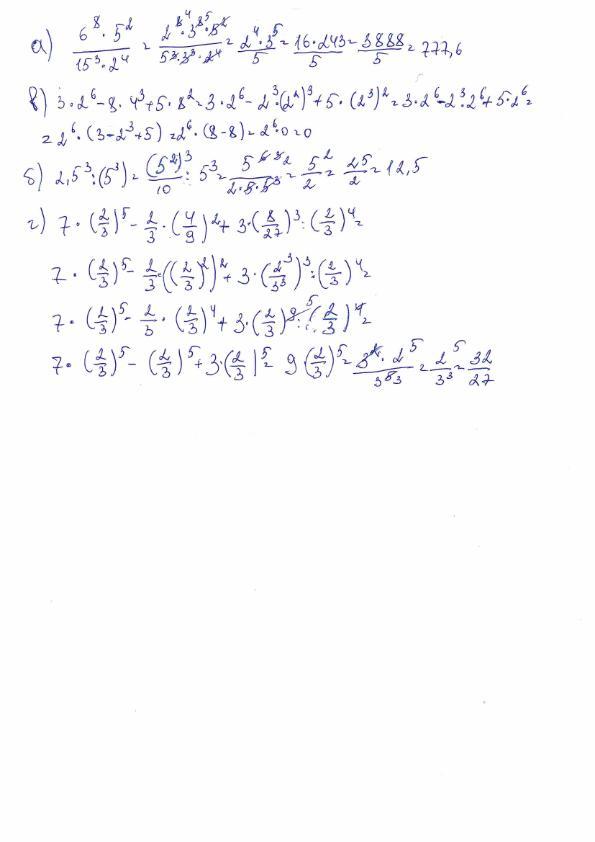 а) 6⁸·5² / 15³·2⁴ = 2⁸⁴·3⁸⁵·5² / 5³·3³·2⁴ = 2⁴·3⁵ / 5 = 16·243 / 5 = 3888 / 5 = 777,6
в) 3·2⁶-8·4³+5·8²=3·2⁶-2³·(2²)³+5·(2³)²=3·2⁶-2³·2⁶+5·2⁶=
=2⁶·(3-2³+5)=2⁶·(8-8)=2⁶·0=0
б) 2,5³:(5³)=(5²)³/10 : 5³= 5⁶⁻³ ²/2·5·5³ = 5²/2 = 25/2 = 12,5
г) 7·(2/3)⁵-2/3·(4/9)²+3·(8/27)³:(2/3)⁴=
7·(2/3)⁵-2/3·((2/3)²)²+3·(2³/3³)³:(2/3)⁴=
7·(2/3)⁵-2/3·(2/3)⁴+3·(2/3)⁹ ⁵:(2/3)⁴=
7·(2/3)⁵-(2/3)⁵+3·(2/3)⁵= 9(2/3)⁵=3²·2⁵/3⁵ ³=2⁵/3³=32/27